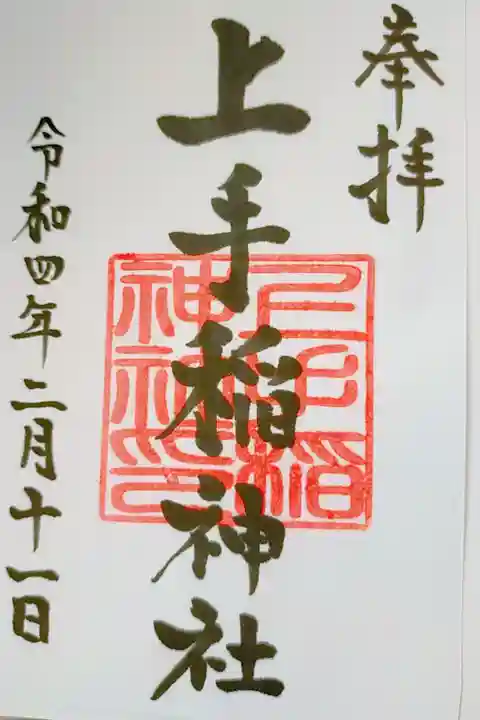 奉拝
上手稲神社
令和四年二月十一日